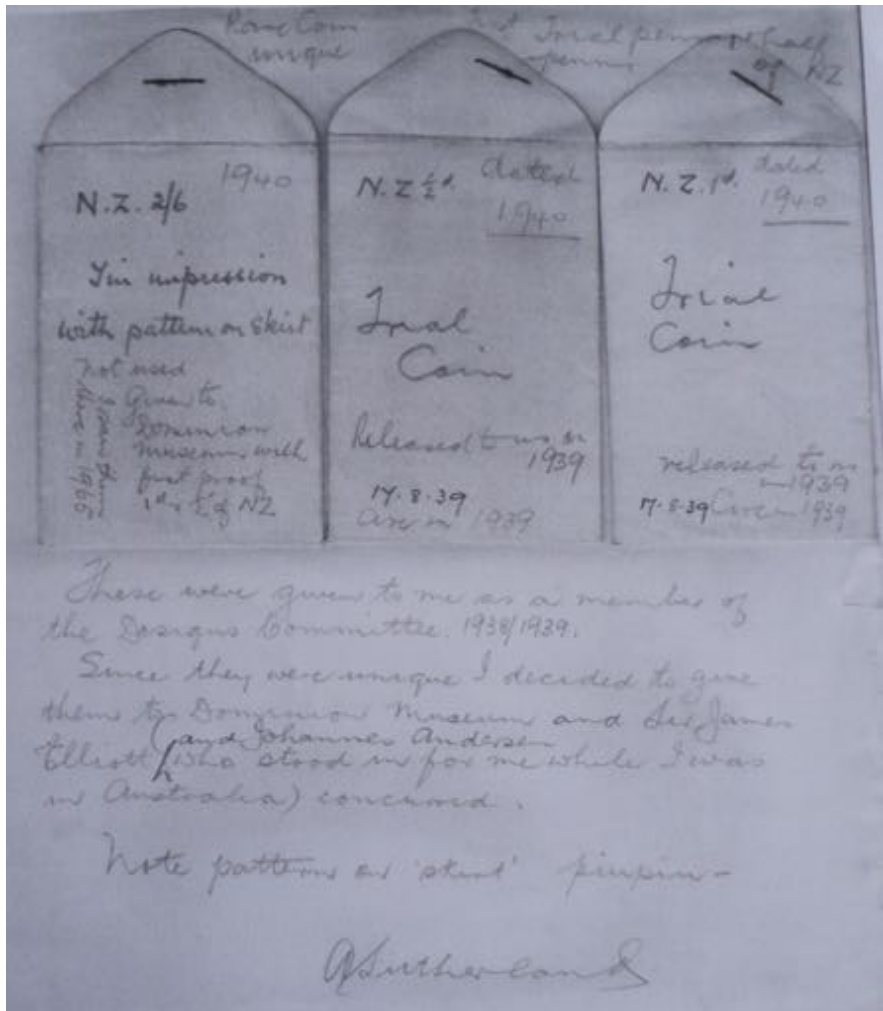 Rare Coin
unique
1st Trial penny & half
penny of NZ
1940
N.Z. 2/6
Tin impression
with pattern on skirt
not used
Given to
Dominion
museum with
first proof
1d & ½d of NZ
in 1966
N.Z ½d. dated
1940
Trial
Coin
Released to us in
1939
17.8.39
in 1939
N.Z. 1d. dated
1940
Trial
Coin
released to us
in 1939
17.8.39 in 1939
These were given to me as a member of
the Designs Committee. 1938/1939.
Since they were unique I decided to give
them to Dominion Museum and Sir James
Elliott (and Johannes Andersen
who stood in for me while I was
in Australia) concurred.
Note pattern on 'skirt' piupiu -
A Sutherland